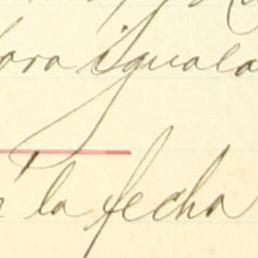 para iguala
la fecha